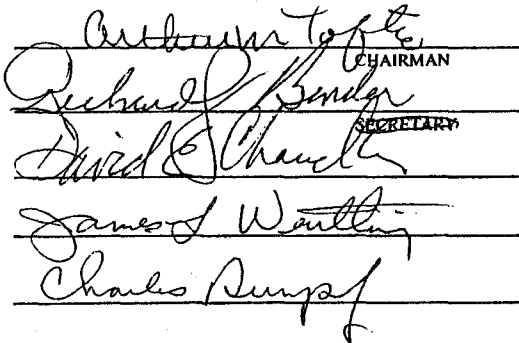 Arthur M Tofte
CHAIRMAN
Richard J Bender
SECRETARY
David E Chandler
James L
Charles Rumpf